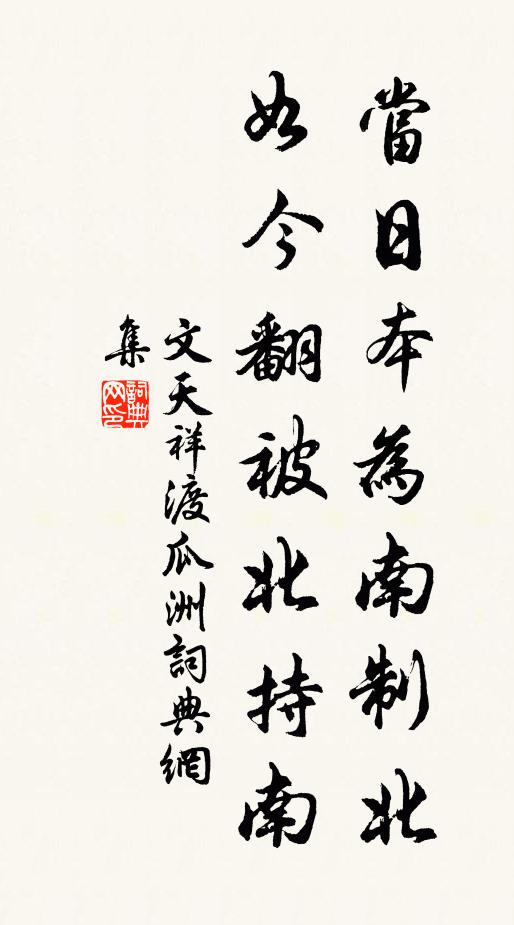 當日本為南制北
如今翻被北持南
文天祥渡瓜洲詞典網
集
詞典
网印